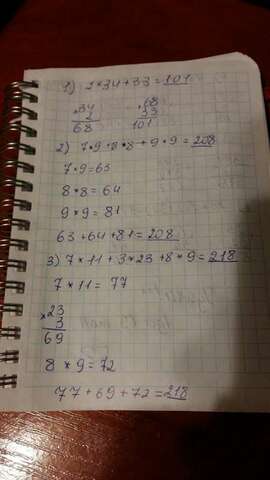 1) 2*34+33=101
*34 +68
2 33
68 101
2) 7*9+8*8+9*9=208
7*9=63
8*8=64
9*9=81
63+64+81=208
3) 7*11+3*23+8*9=218
7*11=77
*23
3
69
8*9=72
77+69+72=218